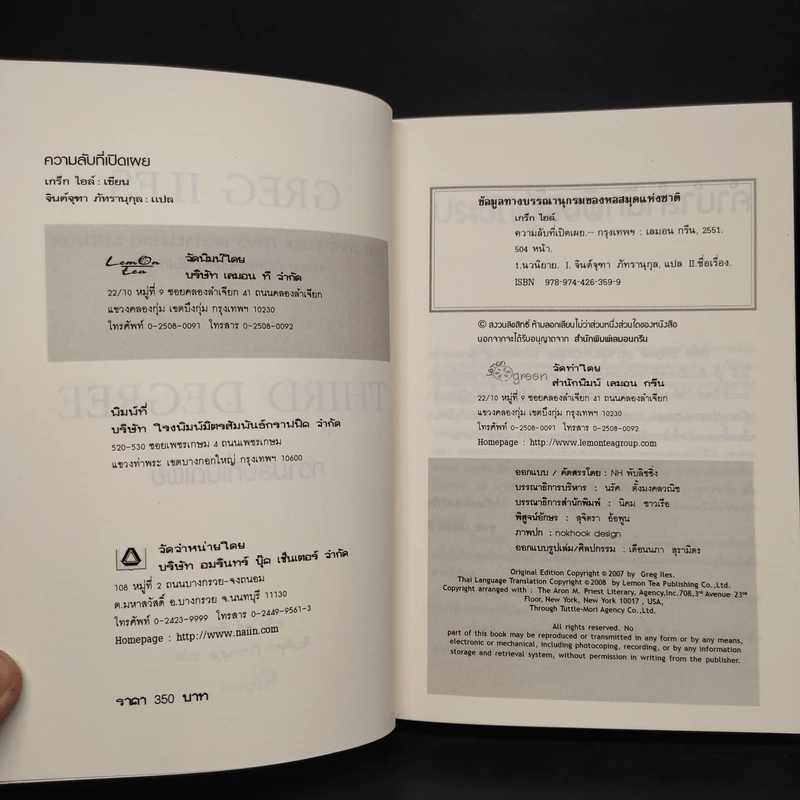 ความลับที่เปิดเผย
เกร็ก ไอล์ : เขียน
จินต์จุฑา ภัทรานุกูล : แปล
Lemon tea
จัดพิมพ์โดย
บริษัท เลมอน ที จำกัด
22/10 หมู่ที่ 9 ซอยคลองลำเจียก 41 ถนนคลองลำเจียก
แขวงคลองกุ่ม เขตบึงกุ่ม กรุงเทพฯ 10230
โทรศัพท์ 0-2508-0091 โทรสาร 0-2508-0092
พิมพ์ที่
บริษัท โรงพิมพ์มิตรสัมพันธ์กราฟฟิค จำกัด
520-530 ซอยเพชรเกษม 4 ถนนเพชรเกษม
แขวงท่าพระ เขตบางกอกใหญ่ กรุงเทพฯ 10600
จัดจำหน่ายโดย
บริษัท อมรินทร์ บุ๊ค เซ็นเตอร์ จำกัด
108 หมู่ที่ 2 ถนนบางกรวย-จงถนอม
ต.มหาสวัสดิ์ อ.บางกรวย จ.นนทบุรี 11130
โทรศัพท์ 0-2423-9999 โทรสาร 0-2449-9561-3
Homepage : http://www.naiin.com
ราคา 350 บาท
ข้อมูลทางบรรณานุกรมของหอสมุดแห่งชาติ
เกร็ก ไอล์.
ความลับที่เปิดเผย.-- กรุงเทพฯ : เลมอน กรีน, 2551.
504 หน้า.
1.นวนิยาย. I. จินต์จุฑา ภัทรานุกูล, แปล II.ชื่อเรื่อง.
ISBN 978-974-426-359-9
© สงวนลิขสิทธิ์ ห้ามลอกเลียนไม่ว่าส่วนหนึ่งส่วนใดของหนังสือ
นอกจากจะได้รับอนุญาตจาก สำนักพิมพ์เลมอนกรีน
green
จัดทำโดย
สำนักพิมพ์ เลมอน กรีน
22/10 หมู่ที่ 9 ซอยคลองลำเจียก 41 ถนนคลองลำเจียก
แขวงคลองกุ่ม เขตบึงกุ่ม กรุงเทพฯ 10230
โทรศัพท์ 0-2508-0091 โทรสาร 0-2508-0092
Homepage : http://www.lemonteagroup.com
ออกแบบ / คัดสรรโดย : NH พับลิชชิ่ง
บรรณาธิการบริหาร : นรัศ ตั้งมงคลวณิช
บรรณาธิการสำนักพิมพ์ : นิคม ชาวเรือ
พิสูจน์อักษร : สุจิตรา อ้อพูน
ภาพปก : nokhook design
ออกแบบรูปเล่ม/ศิลปกรรม : เดือนนภา สุรามิตร
Original Edition Copyright © 2007 by Greg Iles.
Thai Language Translation Copyright © 2008 by Lemon Tea Publishing Co.,Ltd.
Copyright arranged with : The Aron M. Priest Literary, Agency,Inc.708,3rd Avenue 23rd
Floor, New York, New York 10017 , USA,
Through Tuttle-Mori Agency Co.,Ltd.
All rights reserved. No
part of this book may be reproduced or transmitted in any form or by any means,
electronic or mechanical, including photocoping, recording, or by any information
storage and retrieval system, without permission in writing from the publisher.